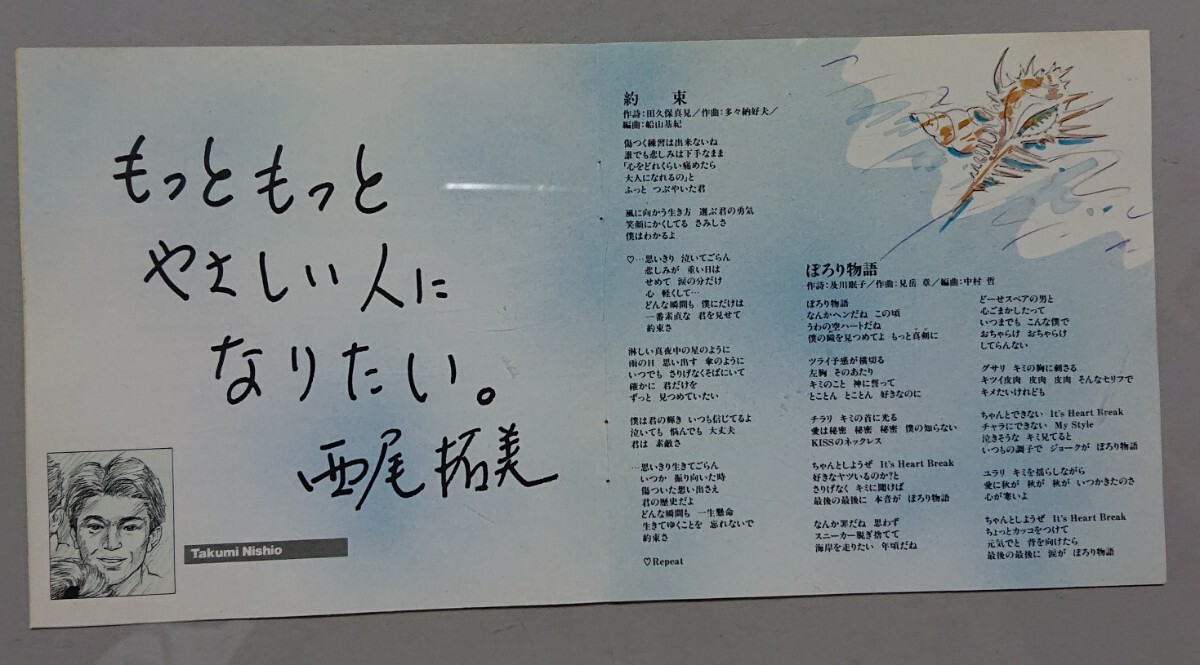 もっともっと
やさしい人に
なりたい。
西尾拓美
Takumi Nishio
約束
作詩：田久保真見／作曲：多々納好夫／
編曲：船山基紀
傷つく練習は出来ないね
誰でも悲しみは下手なまま
「心をどれくらい痛めたら
大人になれるの」と
ふっと つぶやいた君
風に向かう生き方 選ぶ君の勇気
笑顔にかくしてる さみしさ
僕はわかるよ
♡…思いきり 泣いてごらん
悲しみが 重い日は
せめて 涙の分だけ
心 軽くして…
どんな瞬間も 僕にだけは
一番素直な 君を見せて
約束さ
淋しい真夜中の星のように
雨の日 思い出す 傘のように
いつでも さりげなくそばにいて
確かに 君だけを
ずっと 見つめていたい
僕は君の輝き いつも信じてるよ
泣いても 悩んでも 大丈夫
君は 素敵さ
…思いきり生きてごらん
いつか 振り向いた時
傷ついた想い出さえ
君の歴史だよ
どんな瞬間も 一生懸命
生きてゆくことを 忘れないで
約束さ
♡Repeat
ぽろり物語
作詩：及川眠子／作曲：見岳 章／編曲：中村 哲
ぽろり物語
なんかヘンだね この頃
うわの空ハートだね
僕の瞳を見つめてよ もっと真剣に
ツライ予感が横切る
左胸 そのあたり
キミのこと 神に誓って
とことん とことん 好きなのに
チラリ キミの首に光る
愛は秘密 秘密 秘密 僕の知らない
KISSのネックレス
ちゃんとしようぜ It's Heart Break
好きなヤツいるのか?と
さりげなく キミに聞けば
最後の最後に 本音が ぽろり物語
なんか罪だね 思わず
スニーカー脱ぎ捨てて
海岸を走りたい 年頃だね
どーせスペアの男と
心ごまかしたって
いつまでも こんな僕で
おちゃらけ おちゃらけ
してらんない
グサリ キミの胸に刺さる
キツイ皮肉 皮肉 皮肉 そんなセリフで
キメたいけれども
ちゃんとできない It's Heart Break
チャラにできない My Style
泣きそうな キミ見てると
いつもの調子で ジョークが ぽろり物語
ユラリ キミを揺らしながら
愛に秋が 秋が 秋が いつかきたのさ
心が寒いよ
ちゃんとしようぜ It's Heart Break
ちょっとカッコをつけて
元気でと 背を向けたら
最後の最後に 涙が ぽろり物語